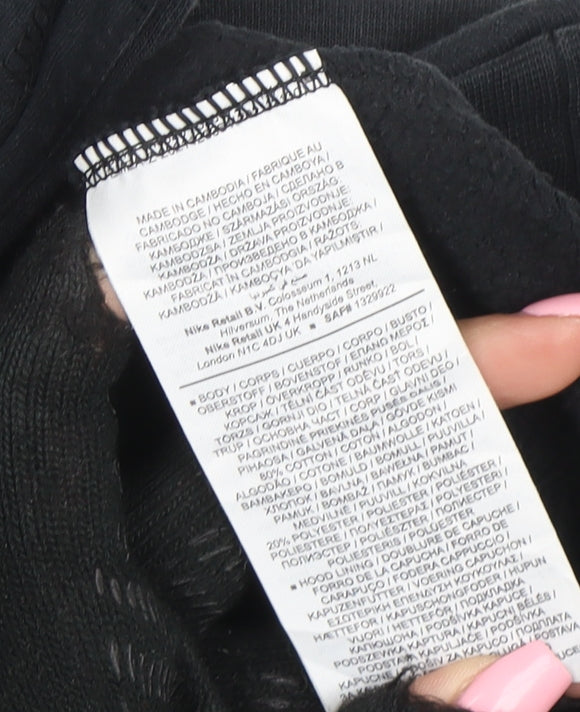 MADE IN CAMBODIA / FABRIQUE AU
CAMBODGE / HECHO EN CAMBOYA /
FABRICADO NO CAMBOJA / СДЕЛАНО В
КАМБОДЖЕ / SZÁRMAZÁSI ORSZÁG:
KAMBODZSA / ZEMLJA PROIZVODNJE:
KAMBODŽA / DRŽAVA PROIZVODNJE:
KAMBODŽA / ПРОИЗВЕДЕНО В КАМБОДЖА /
FABRICAT ÎN CAMBODGIA / RAŽOTS:
KAMBODŽA / KAMBOÇYA'DA YAPILMIŞTIR /
Nike Retail B.V. Colosseum 1, 1213 NL
Hilversum, The Netherlands
Nike Retail UK 4 Handyside Street,
London N1C 4DJ UK ■ SAF# 1329922
■ BODY / CORPS / CUERPO / CORPO / BUSTO /
OBERSTOFF / BOVENSTOF / ΕΠΑΝΩ ΜΕΡΟΣ /
KROP / OVERKROPP / RUNKO / BÅL /
КОРСАЖ / TĚLNÍ ČÁST ODĚVU / TÖRS /
TÖRZS / GORNJI DIO / TELNÁ ČASŤ ODEVU /
TRUP / ОСНОВНА ЧАСТ / CORP / GLAVNI DEO /
PAGRINDINĖ PRIEKINĖS PUSĖS DALIS /
PIHAOSA / GALVENĀ DAĻA / GÖVDE KISMI
80% COTTON / COTON / ALGODÓN /
ALGODÃO / COTONE / BAUMWOLLE / KATOEN /
ΒΑΜΒΑΚΕΡΟ / BOMULD / BOMULL / PUUVILLA /
ХЛОПОК / BAVLNA / BAWEŁNA / PAMUT /
PAMUK / BOMBAŽ / ПАМУК / BUMBAC
MEDVILNĖ / PUUVILL / KOKVILNA
20% POLYESTER / POLYESTER / POLIÉSTER /
POLIESTERE / ΠΟΛΥΕΣΤΕΡΑΣ / POLYESTERI /
ПОЛИЭСТЕР / POLIÉSZTER / ПОЛИЕСТЕР /
POLIESTERIS / POLIESTRU
■ HOOD LINING / DOUBLURE DE CAPUCHE /
FORRO DE LA CAPUCHA / FORRO DE
CARAPUÇO / FODERA CAPPUCCIO /
KAPUZENFUTTER / VOERING CAPUCHON /
ΕΣΩΤΕΡΙΚΗ ΕΠΕΝΔΥΣΗ ΚΟΥΚΟΥΛΑΣ /
HÆTTEFOR / KAPUSCHONGFODER / HUPUN
VUORI / HETTEFÔR / ПОДКЛАДКА
КАПЮШОНА / PODŠÍVKA KAPUCE /
PODSZEWKA KAPTURA / KAPUCNI BÉLÉS /
PODSTAVA KAPULJAČE / PODŠÍVKA
KAPUCNE / ПОДПЛАТА